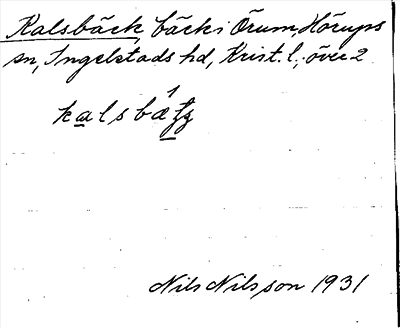 Kalsbäck, bäck i Örum, Hörups
sn, Ingelstads hd, Krist. l., över 2
Nils Nilsson 1931